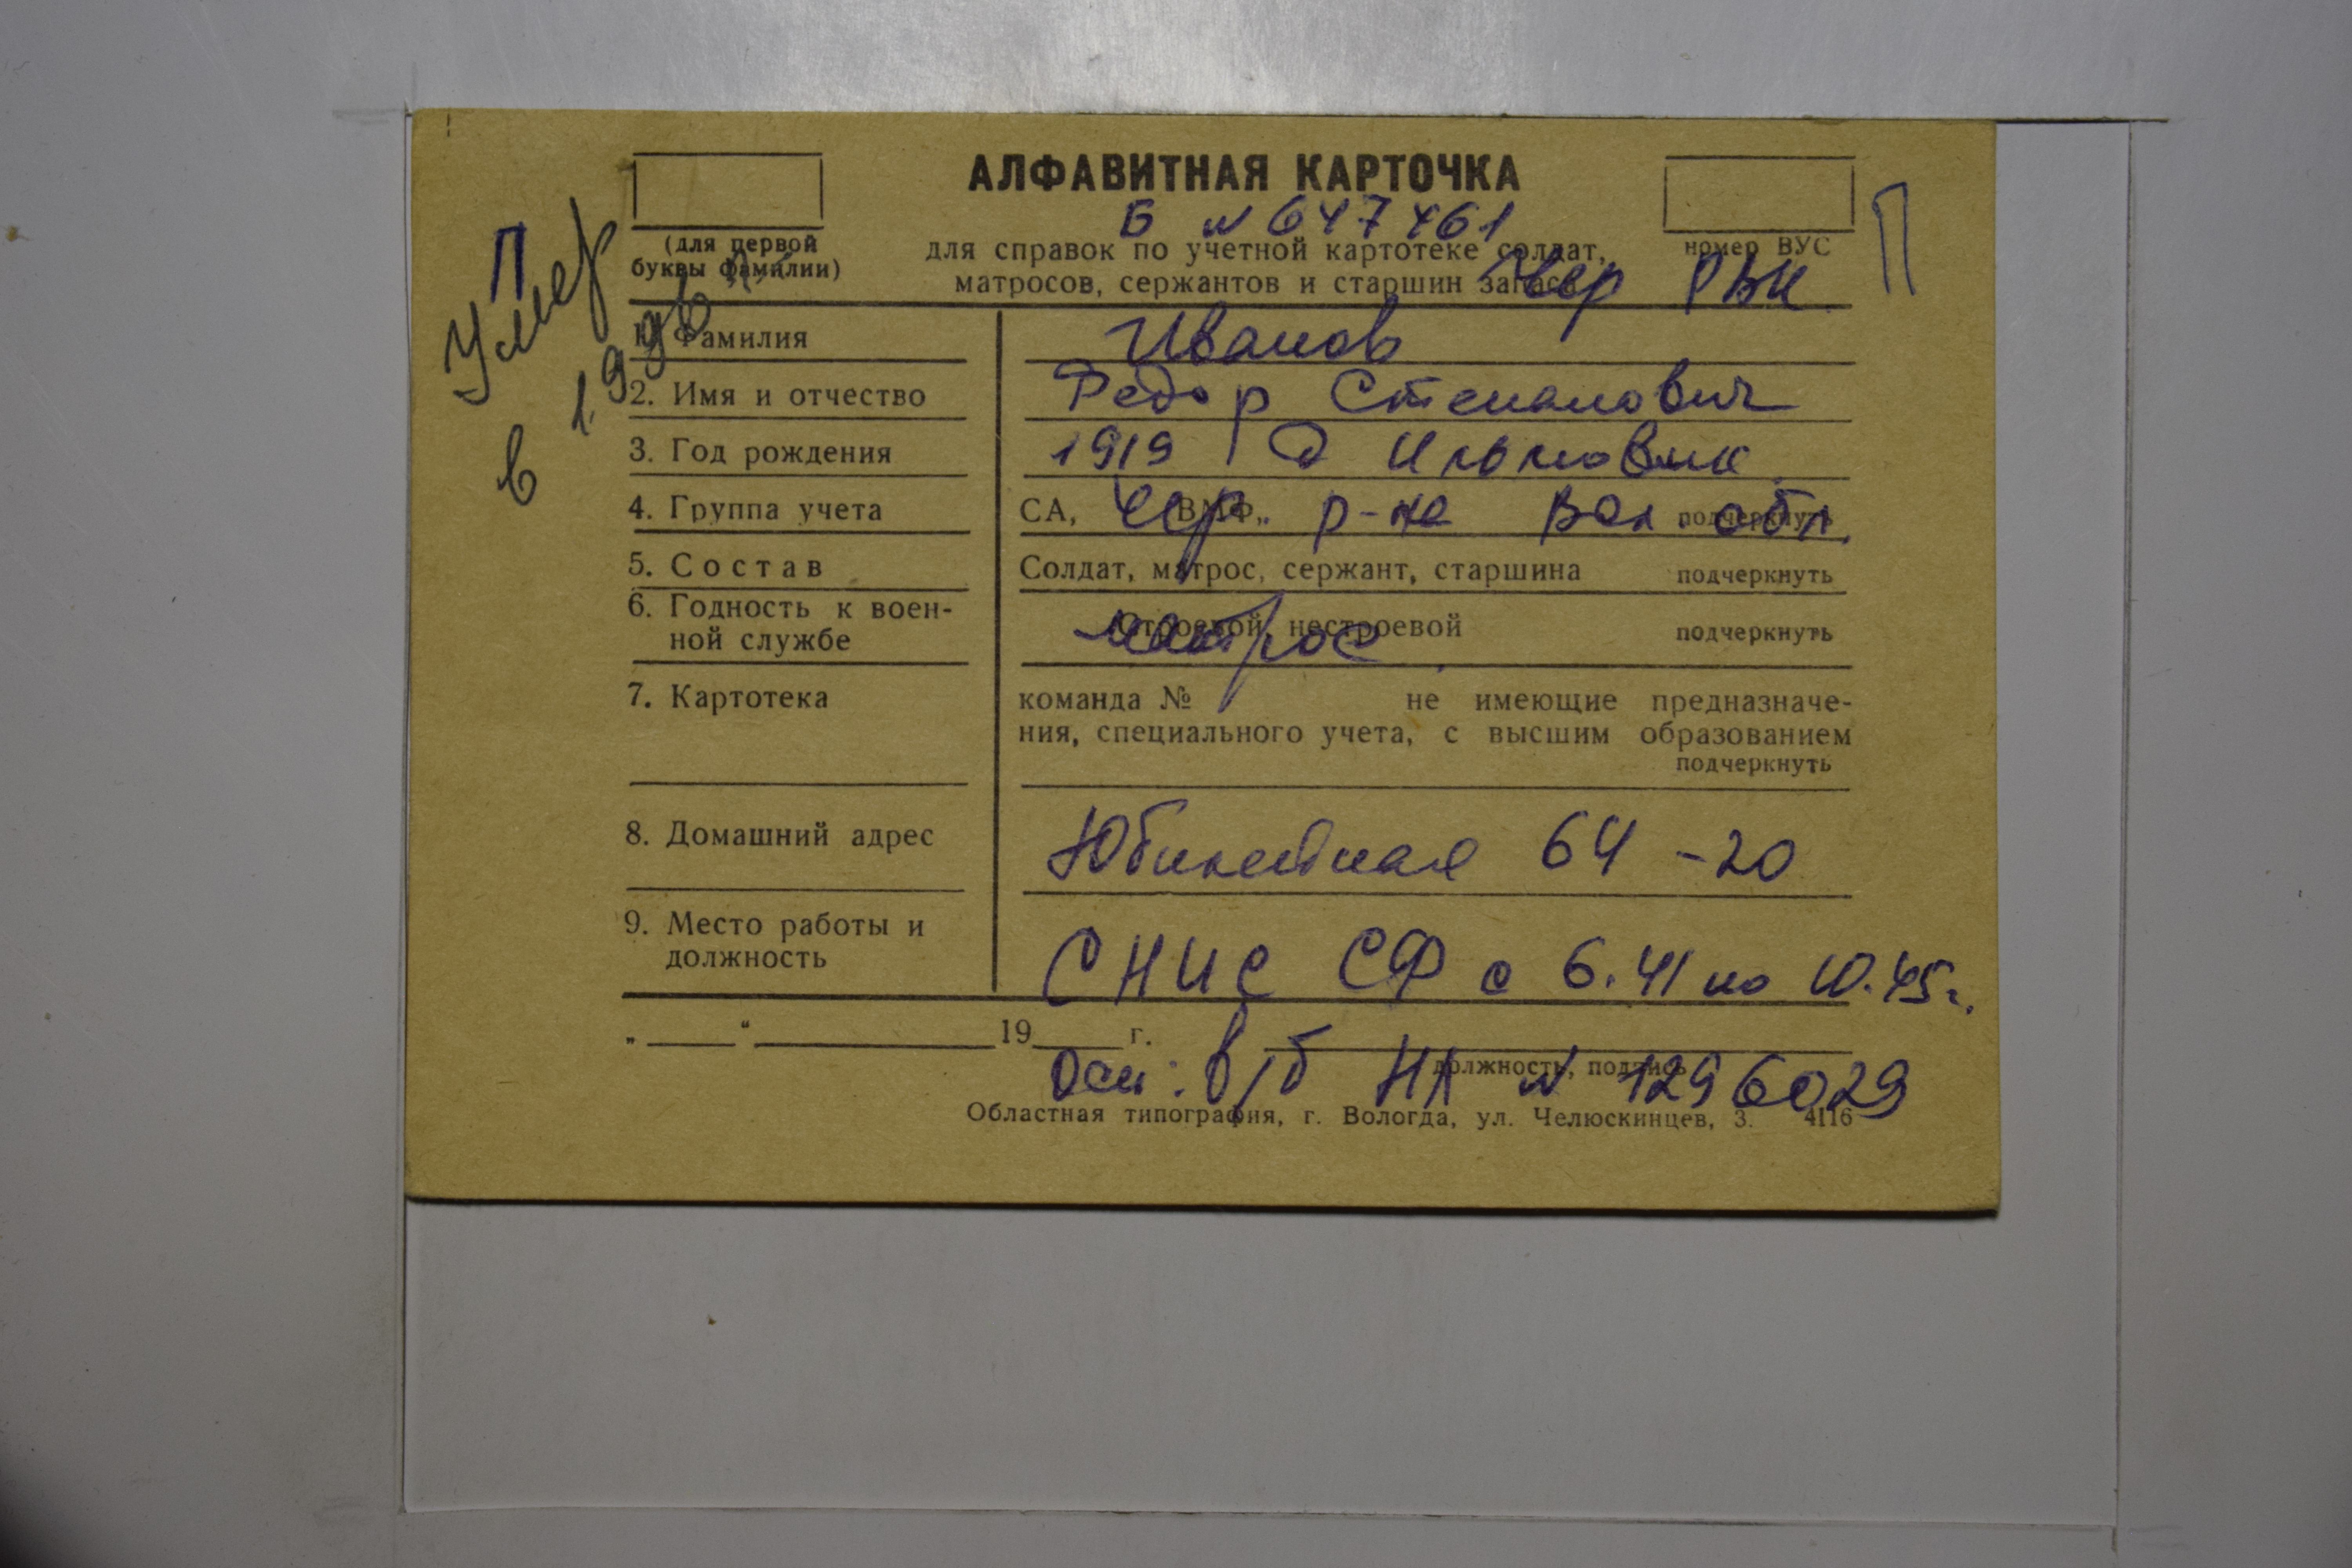 АЛФАВИТНАЯ КАРТОЧКА
Б № 647461
(для первой
буквы фамилии)
для справок по учетной картотеке солдат,
матросов, сержантов и старшин запаса
номер ВУС
Чер РВК
П
П
Умер
в 1.996 г.
1. Фамилия Иванов
2. Имя и отчество Федор Степанович
3. Год рождения 1919 д
4. Группа учета СА, ВМФ,, подчеркнуть
Чер. р-на Вол. обл.
5. Состав Солдат, матрос, сержант, старшина подчеркнуть
6. Годность к воен-
ной службе
Строевой, нестроевой подчеркнуть
матрос
7. Картотека
команда № не имеющие предназначе-
ния, специального учета, с высшим образованием
подчеркнуть
8. Домашний адрес Юбилейная 64 -20
9. Место работы и
должность
СНИС СФ с 6.41 по 10.45г.
„ “ 19 г.
должность, подпись
Осн: в/б НЛ № 1296029
Областная типография, г. Вологда, ул. Челюскинцев, 3. 4116